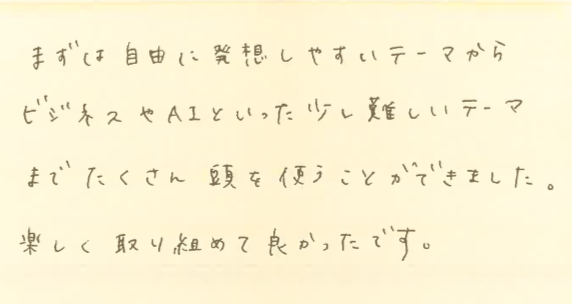 まずは自由に発想しやすいテーマから
ビジネスやAIといった少し難しいテーマ
までたくさん頭を使うことができました。
楽しく取り組めて良かったです。